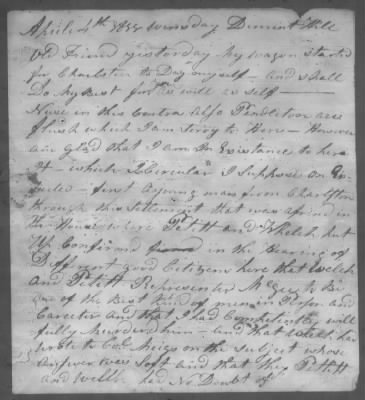 Aprile 4th 1822 Wensday Demint Hill
Old Friend yesterday My wagon Started
for Charlston to Day myself - and shall
Do My best for as well as self -
Nuse in this Contra also Pendleton are
flush which I am sorry to Here - However
am glad that I am In Existance to here
It - which Is Circular I Suppose an
- first a young man from Charlston
through this Settlement that was a friend in
the House where Petitt and Whelch put
Up Confirmed in the Hearing of
Different good Citizens here that Welch
and Petitt Represented McGee to Be
one of the Best kind of men in Person and
Carecter and that I had Completely will
fully Murdered him - and that Welch had
wrote to Col. Meigs on the subject whose
answer was Soft and that they Petitt
and Welch had No Doubt of